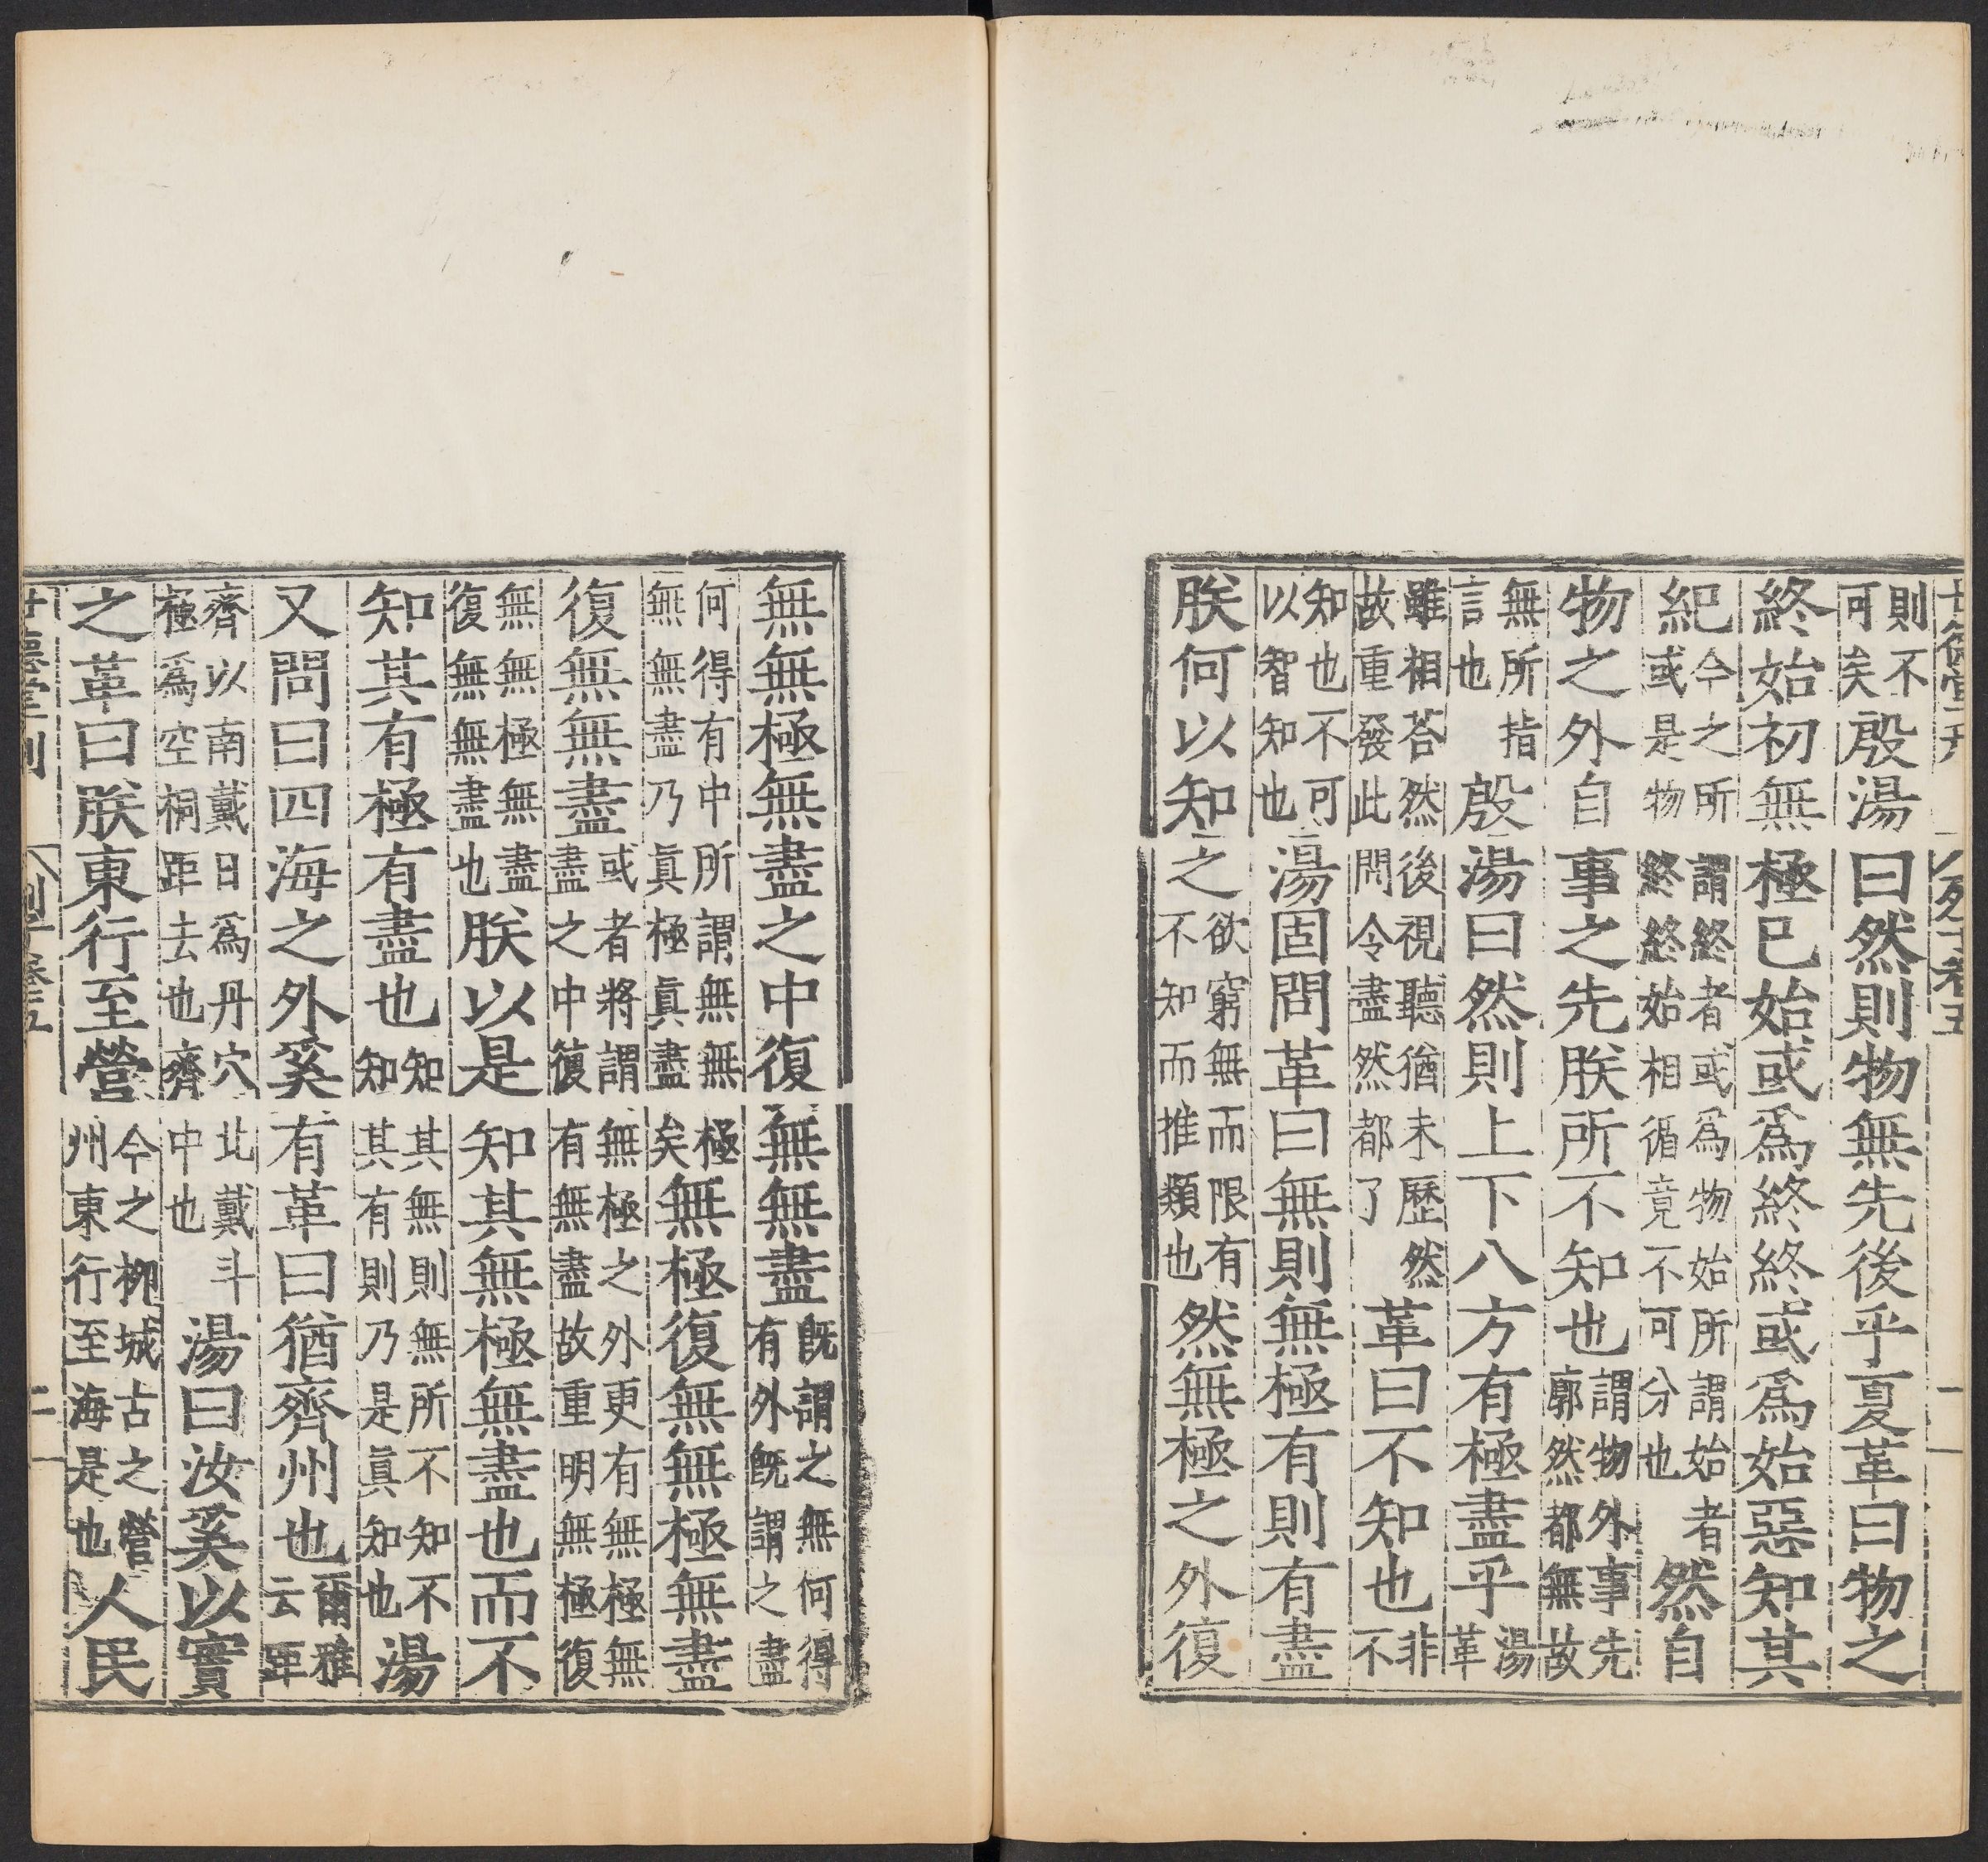 世德堂刊 列子卷五 二
則不可矣殷湯曰然則物無先後乎夏革曰物之
終始初無極已始或爲終終或爲始惡知其
紀今之所謂終者或爲物始所謂始者或是物終終始相循竟不可分也然自
物之外自事之先朕所不知也謂物外事先廓然都無故
無所指言也殷湯曰然則上下八方有極盡乎湯革
雖相荅然後視聽猶未歷然故重發此問令盡然都了革曰不知也非不
知也不可以智知也湯固問革曰無則無極有則有盡
朕何以知之欲窮無而限有不知而推類也然無極之外復
無無極無盡之中復無無盡旣謂之無何得有外旣謂之盡
何得有中所謂無無極無無盡乃眞極眞盡矣無極復無無極無盡
復無無盡或者將謂無極之外更有無極無盡之中復有無盡故重明無極復無
無無極無盡復無無盡也朕以是知其無極無盡也而不
知其有極有盡也知其無則無所不知不知其有則乃是眞知也湯
又問曰四海之外奚有革曰猶齊州也爾雅云距
齊以南戴日爲丹穴北戴斗極爲空桐距去也齊中也湯曰汝奚以實
之革曰朕東行至營今之柳城古之營州東行至海是也人民
世德堂刊 列子卷五 二